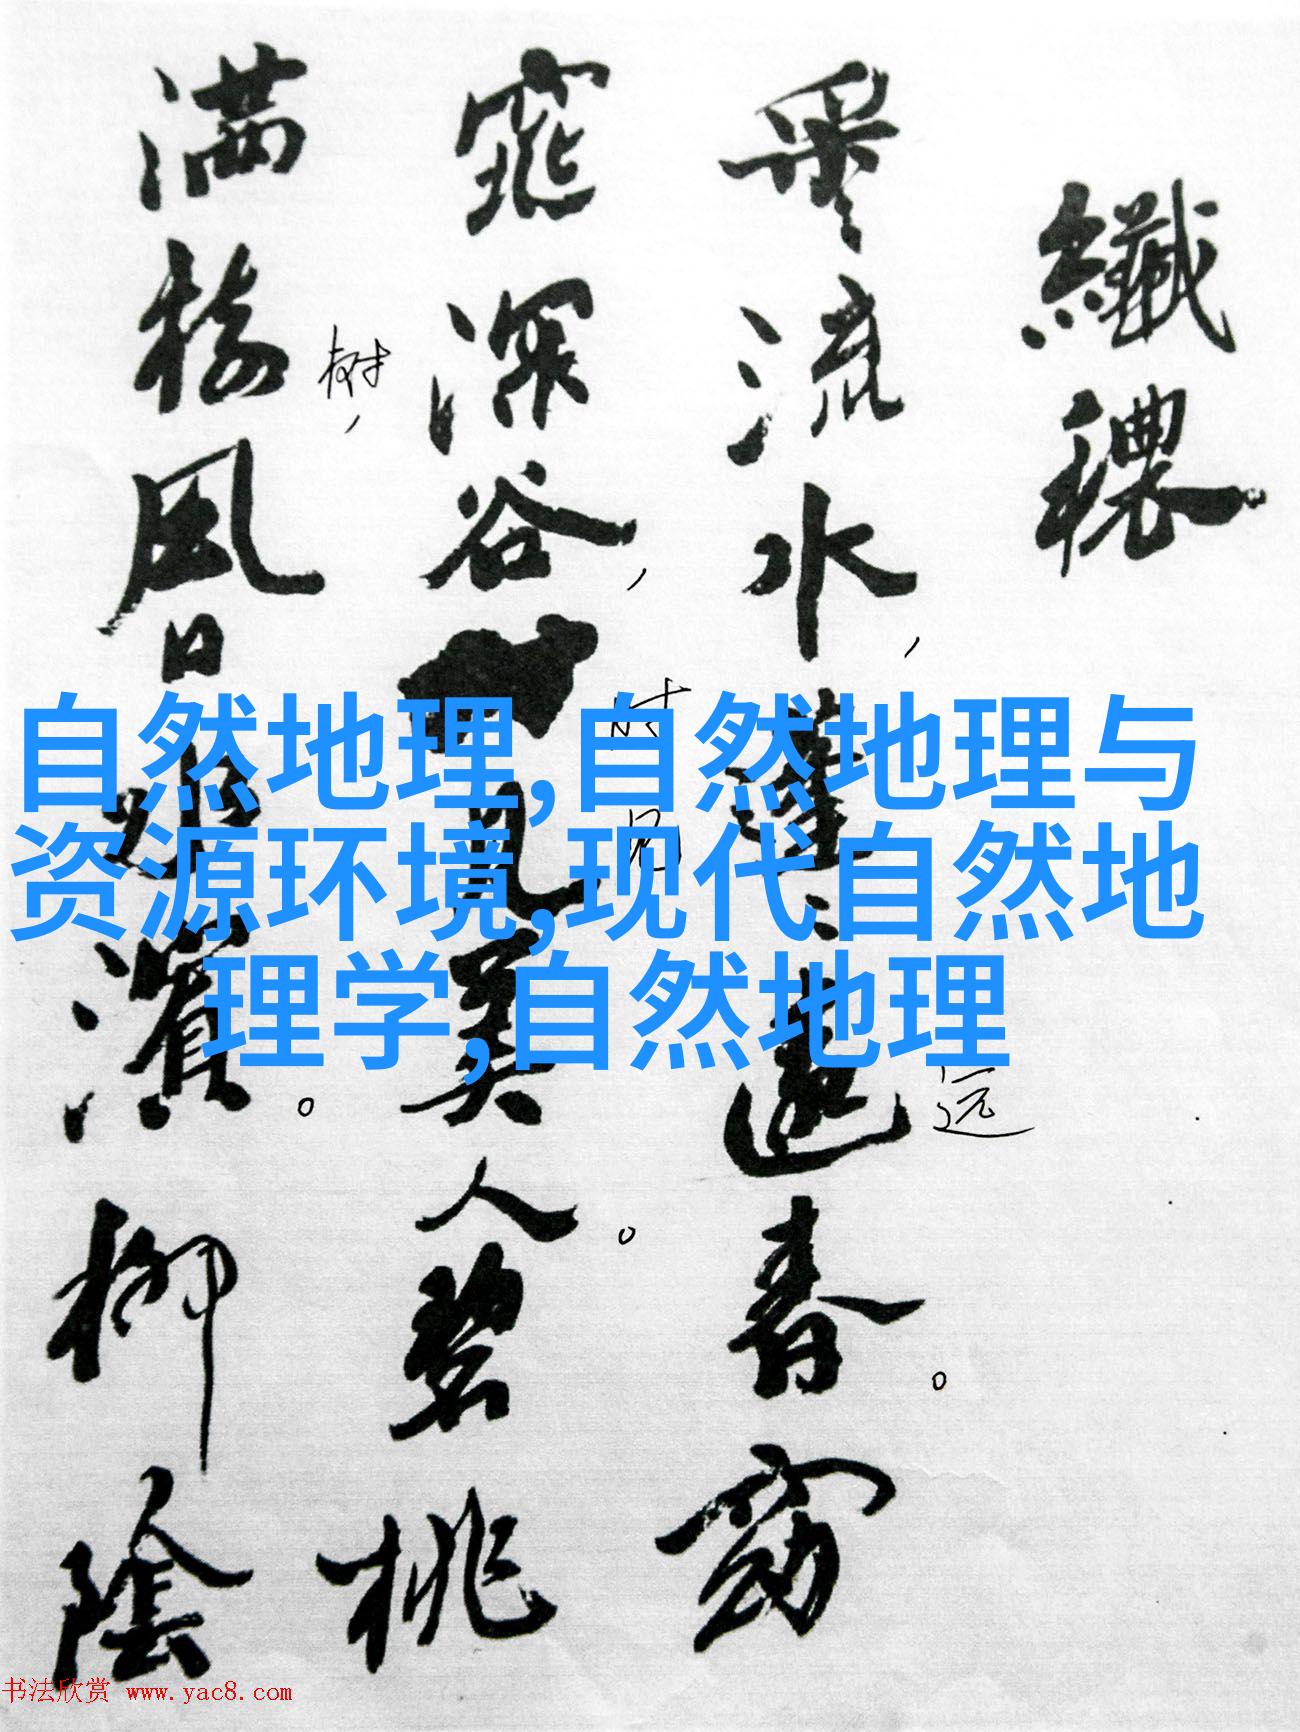 纖穠
采流水，蓬蓬遠春。窈
窕深谷，時見美人。碧桃
满樹風日水濱。柳陰
树，
时
见
远
自然地理,自然地理与
资源环境,现代自然地
理学,自然地理
书法欣赏 www.yac8.com